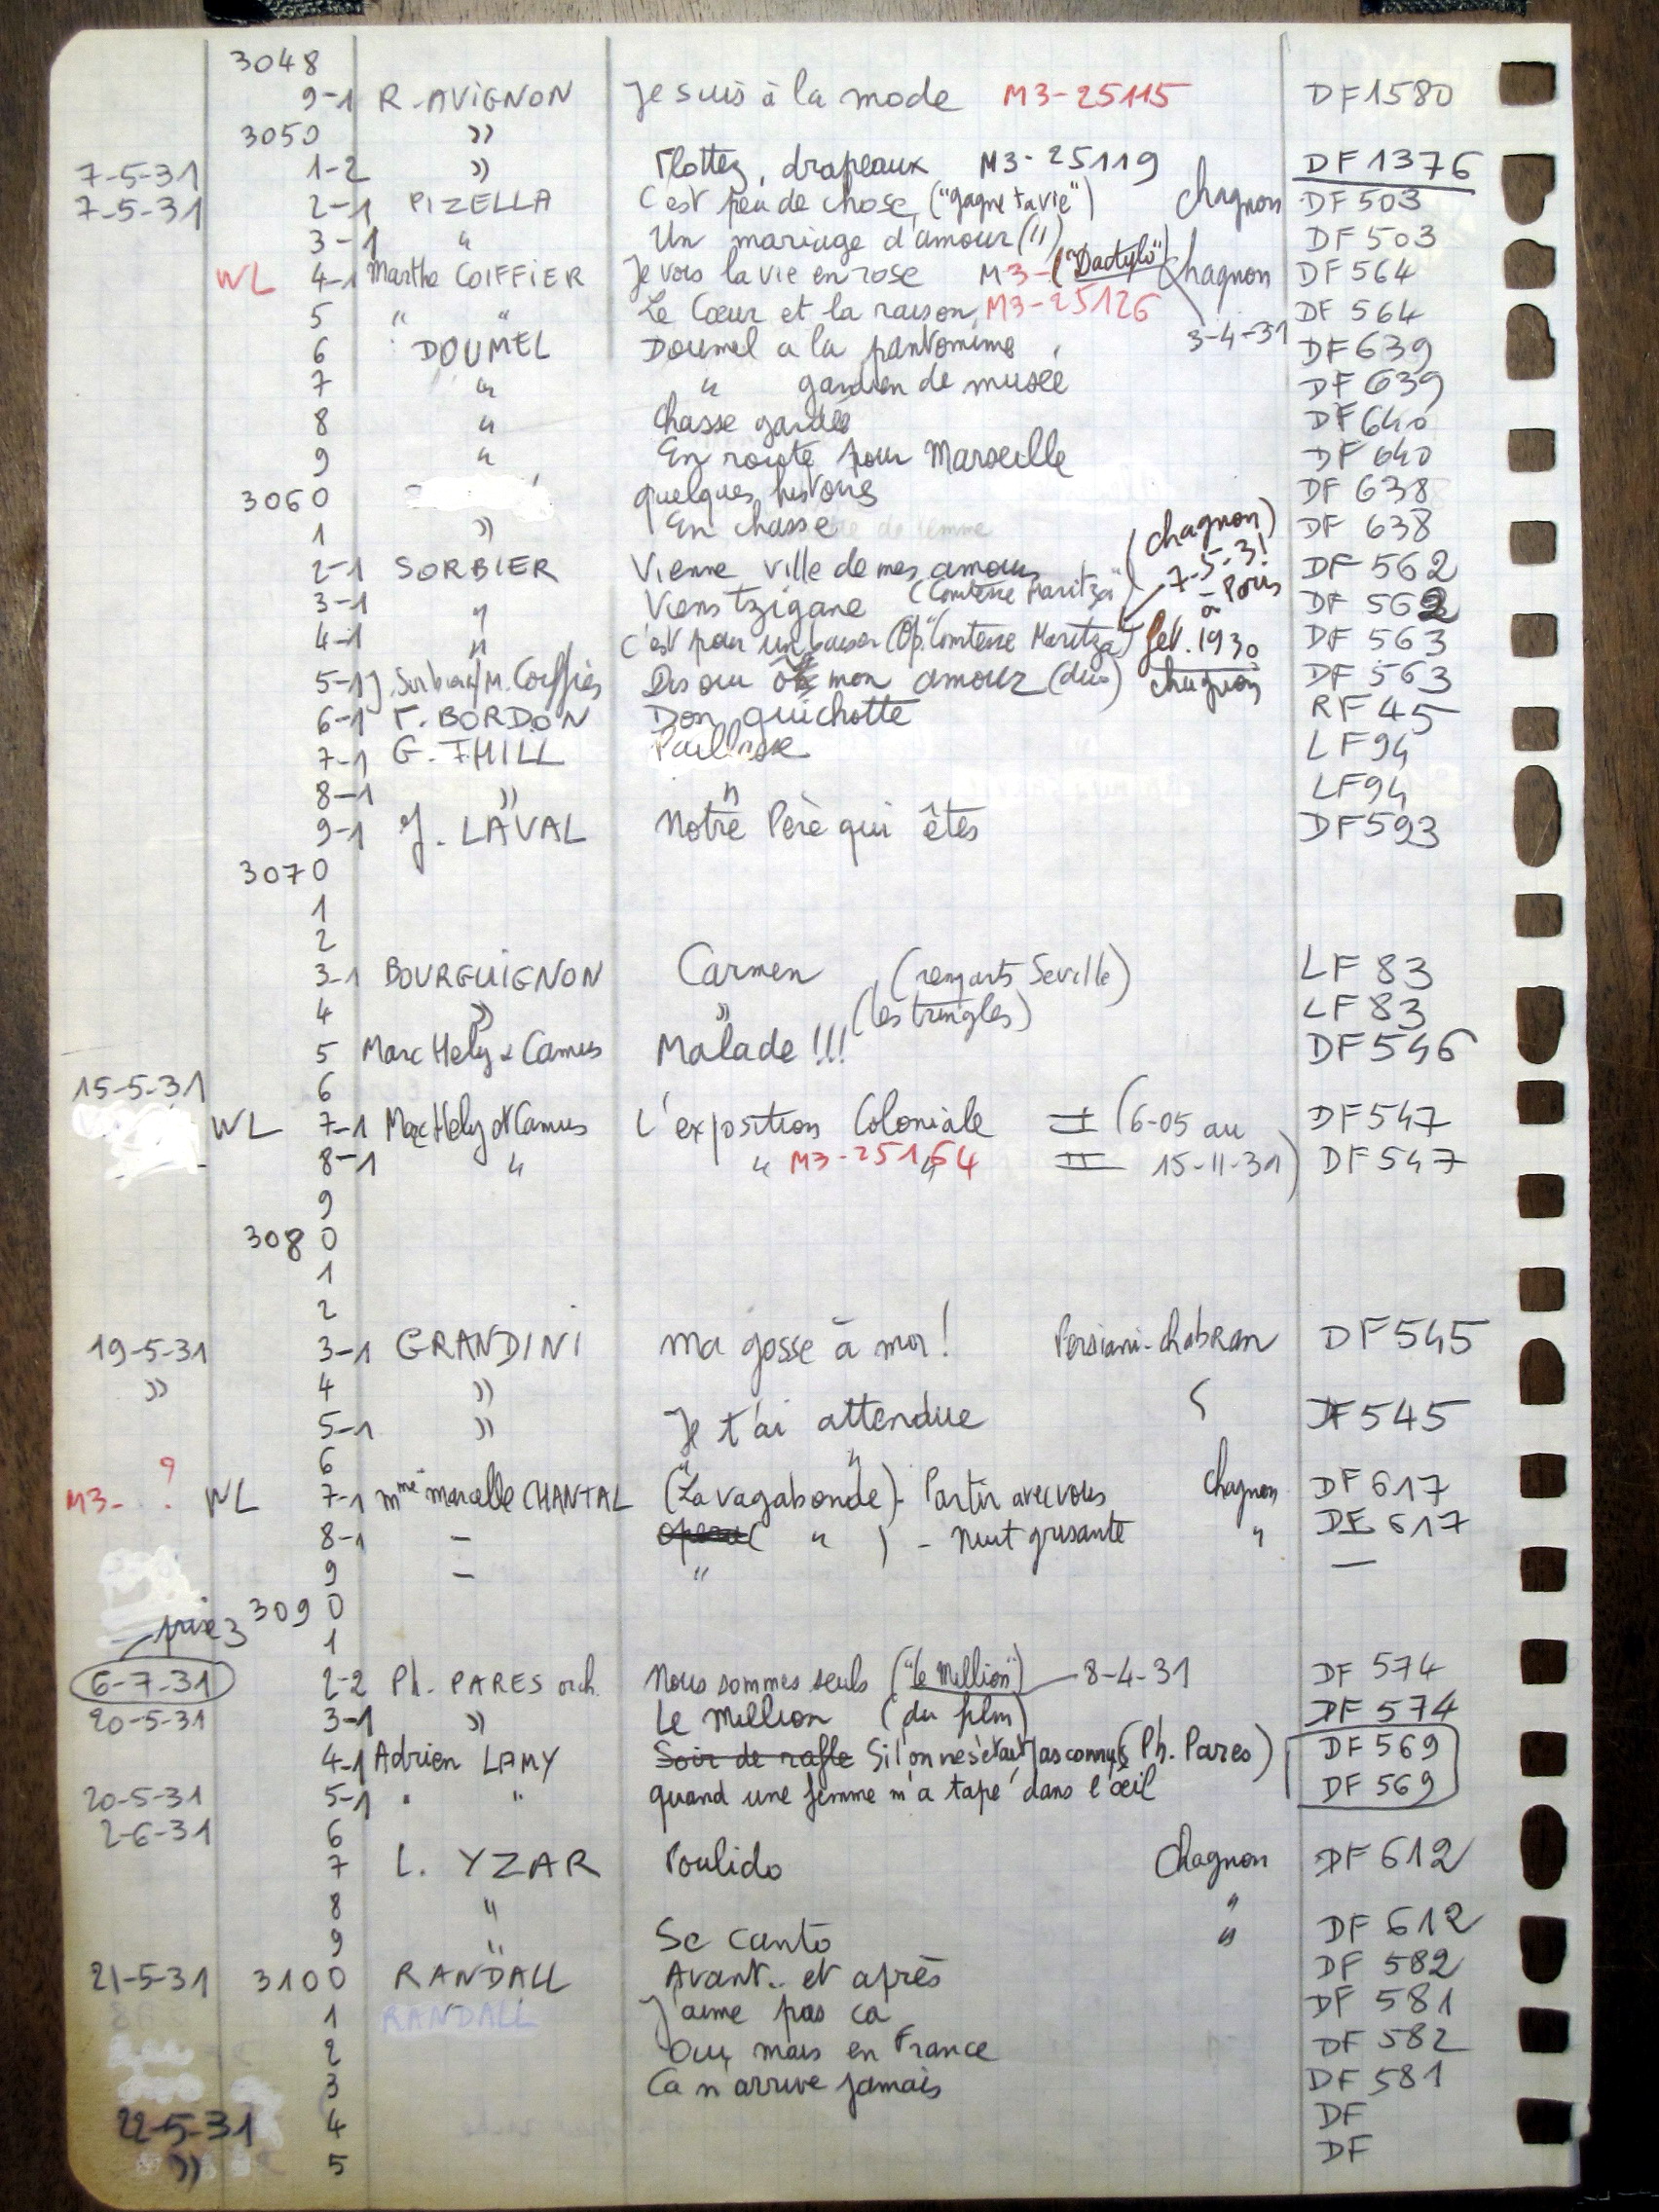 3048
9-1 R. AVIGNON Je suis à la mode M3-25115 DF1580
3050 〃
7-5-31 1-2 〃 Flottez, drapeaux M3-25119 DF1376
7-5-31 2-1 PIZELLA C'est peu de chose, ("gagne ta vie") Chagnon DF503
3-1 〃 Un mariage d'amour (〃) DF503
WL 4-1 Marthe COIFFIER Je vois la vie en rose M3- ("Dactylo") Chagnon DF564
5 〃 〃 Le Cœur et la raison, M3-25126 3-4-31 DF 564
6 DOUMEL Doumel a la pantomime DF639
7 〃 〃 gardien de musée DF639
8 〃 Chasse gardée DF640
9 〃 En route pour Marseille DF 640
3060 quelques histoires DF 638
1 〃 En chasse DF 638
2-1 SORBIER Vienne ville de mes amours (Chagnon) DF 562
3-1 〃 Viens tzigane (Comtesse Maritza) 7-5-31 à Paris DF 562
4-1 〃 C'est pour un baiser (Op. "Comtesse Maritza") fev. 1930 DF 563
5-1 J. Sorbier/M. Coiffier Dis oui mon amour (duo) chagnon DF 563
6-1 F. BORDON Don quichotte RF 45
7-1 G. THILL Paillasse LF94
8-1 〃 〃 LF94
9-1 J. LAVAL Notre Père qui êtes DF593
3070
1
2
3-1 BOURGUIGNON Carmen (remparts Seville) LF 83
4 〃 〃 (les tringles) LF 83
5 Marc Hely & Camus Malade !!! DF546
15-5-31 6
WL 7-1 Marc Hely et Camus L'exposition Coloniale I (6-05 au DF547
8-1 〃 〃 M3-25164 〃 II 15-11-31) DF547
9
3080
1
2
19-5-31 3-1 GRANDINI Ma gosse à moi ! Persiani-Chabran DF545
〃 4 〃
5-1 〃 Je t'ai attendue DF545
6
M3- ? WL 7-1 Mme Marcelle CHANTAL ("La vagabonde") - Partir avec vous Chagnon DF617
8-1 — Opera ( 〃 ) - Nuit grisante 〃 DF617
9 — 〃 —
3090
prise 3 1
6-7-31 2-2 Ph. PARES orch. Nous sommes seuls ("le Million") 8-4-31 DF 574
20-5-31 3-1 〃 Le Million (du film) DF 574
4-1 Adrien LAMY Soir de rafle Si l'on ne s'était pas connus (Ph. Pares) DF 569
20-5-31 5-1 〃 〃 quand une femme m'a tapé dans l'œil DF 569
2-6-31 6
7 L. YZAR Poulido Chagnon DF 612
8 〃 〃
9 〃 Se canto 〃 DF 612
21-5-31 3100 RANDALL Avant.. et après DF 582
1 RANDALL J'aime pas ca DF 581
2 Oui, mais en France DF 582
3 Ca n'arrive jamais DF 581
22-5-31 4 DF
〃 5 DF